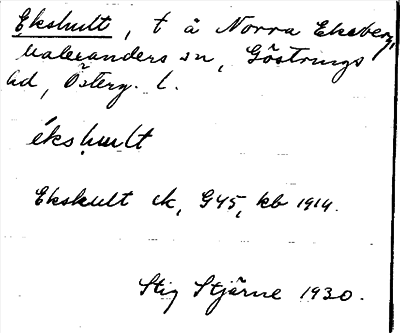 Ekshult, t å Norra Eksberg,
Malexanders sn, Göstrings
hd, Österg. l.
ékshult
Ekshult ek, G45, kb 1914.
Stig Stjärne 1930.